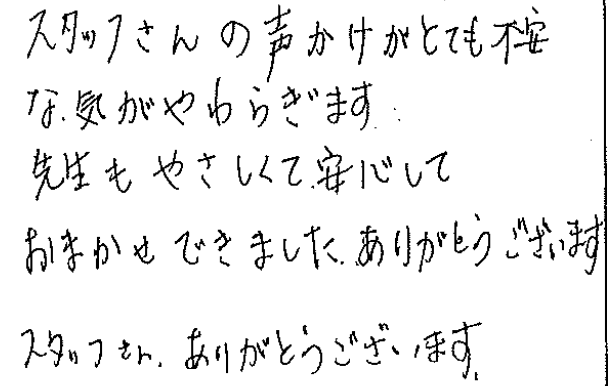 スタッフさんの声かけがとても不安
な気がやわらぎます.
先生もやさしくて.安心して
おまかせできました.ありがとうございます
スタッフさん.ありがとうございます.